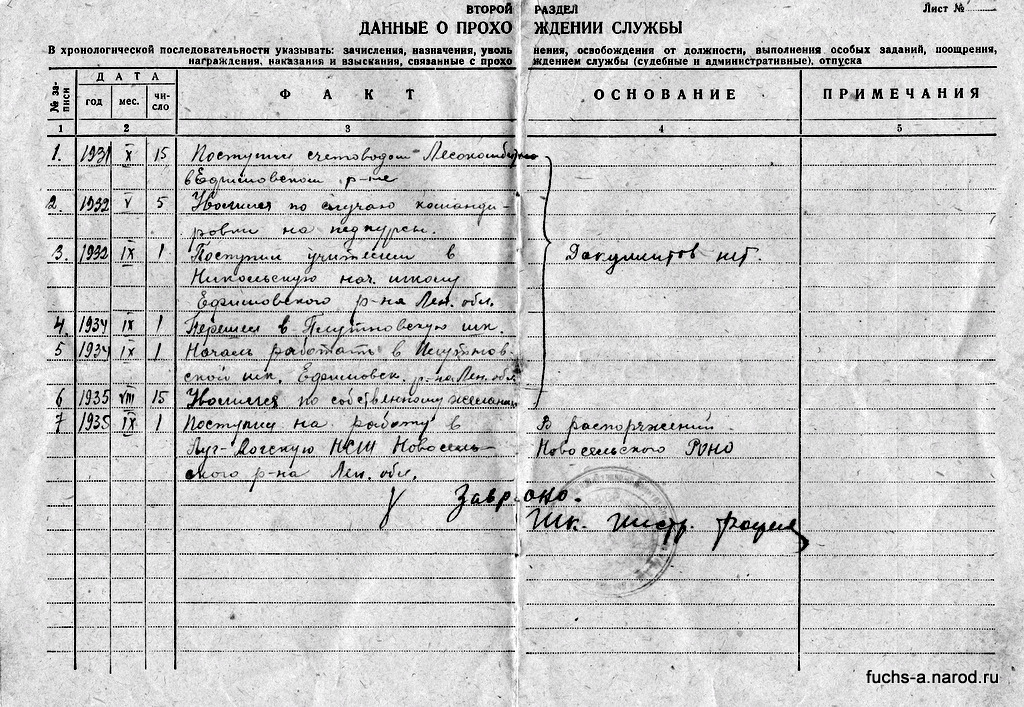 ВТОРОЙ РАЗДЕЛ
Лист №
ДАННЫЕ О ПРОХОЖДЕНИИ СЛУЖБЫ
В хронологической последовательности указывать: зачисления, назначения, увольнения, освобождения от должности, выполнения особых заданий, поощрения,
награждения, наказания и взыскания, связанные с прохождением службы (судебные и административные), отпуска
№ записи
ДАТА
год мес. число
ФАКТ
ОСНОВАНИЕ
ПРИМЕЧАНИЯ
1 2 3 4 5
1. 1931 X 15 Поступил счетоводом
в Ефимовском р-не
2. 1932 V 5 Уволился по случаю команди-
ровки на педкурсы.
3. 1932 IX 1 Поступил учителем в Документов нет.
Никольскую нач. школу
Ефимовского р-на Лен. обл.
4. 1934 IX 1 Перешел в шк.
5 1934 IX 1 Начал работать в
ской шк. Ефимовск. р-на Лен. обл.
6 1935 VIII 15 Уволился по собственному желанию
7 1935 IX 1 Поступил на работу в В распоряжении
НСШ Новосель- Новосельского РОНО
ского р-на Лен. обл.
Зав. роно.
Шк. инстр.
fuchs-a.narod.ru